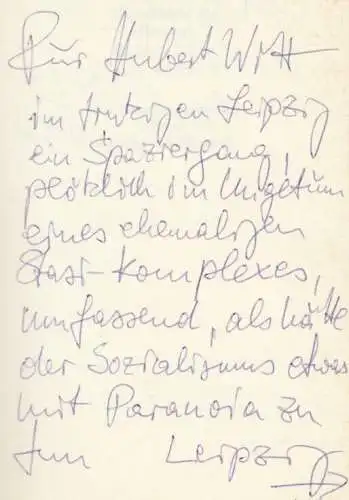 Für Hubert Witt
im trutzigen Leipzig
ein Spaziergang,
plötzlich im Ungetüm
eines ehemaligen
Stasi-Komplexes,
umfassend, als hätte
der Sozialismus etwas
mit Paranoia zu
tun Leipzig